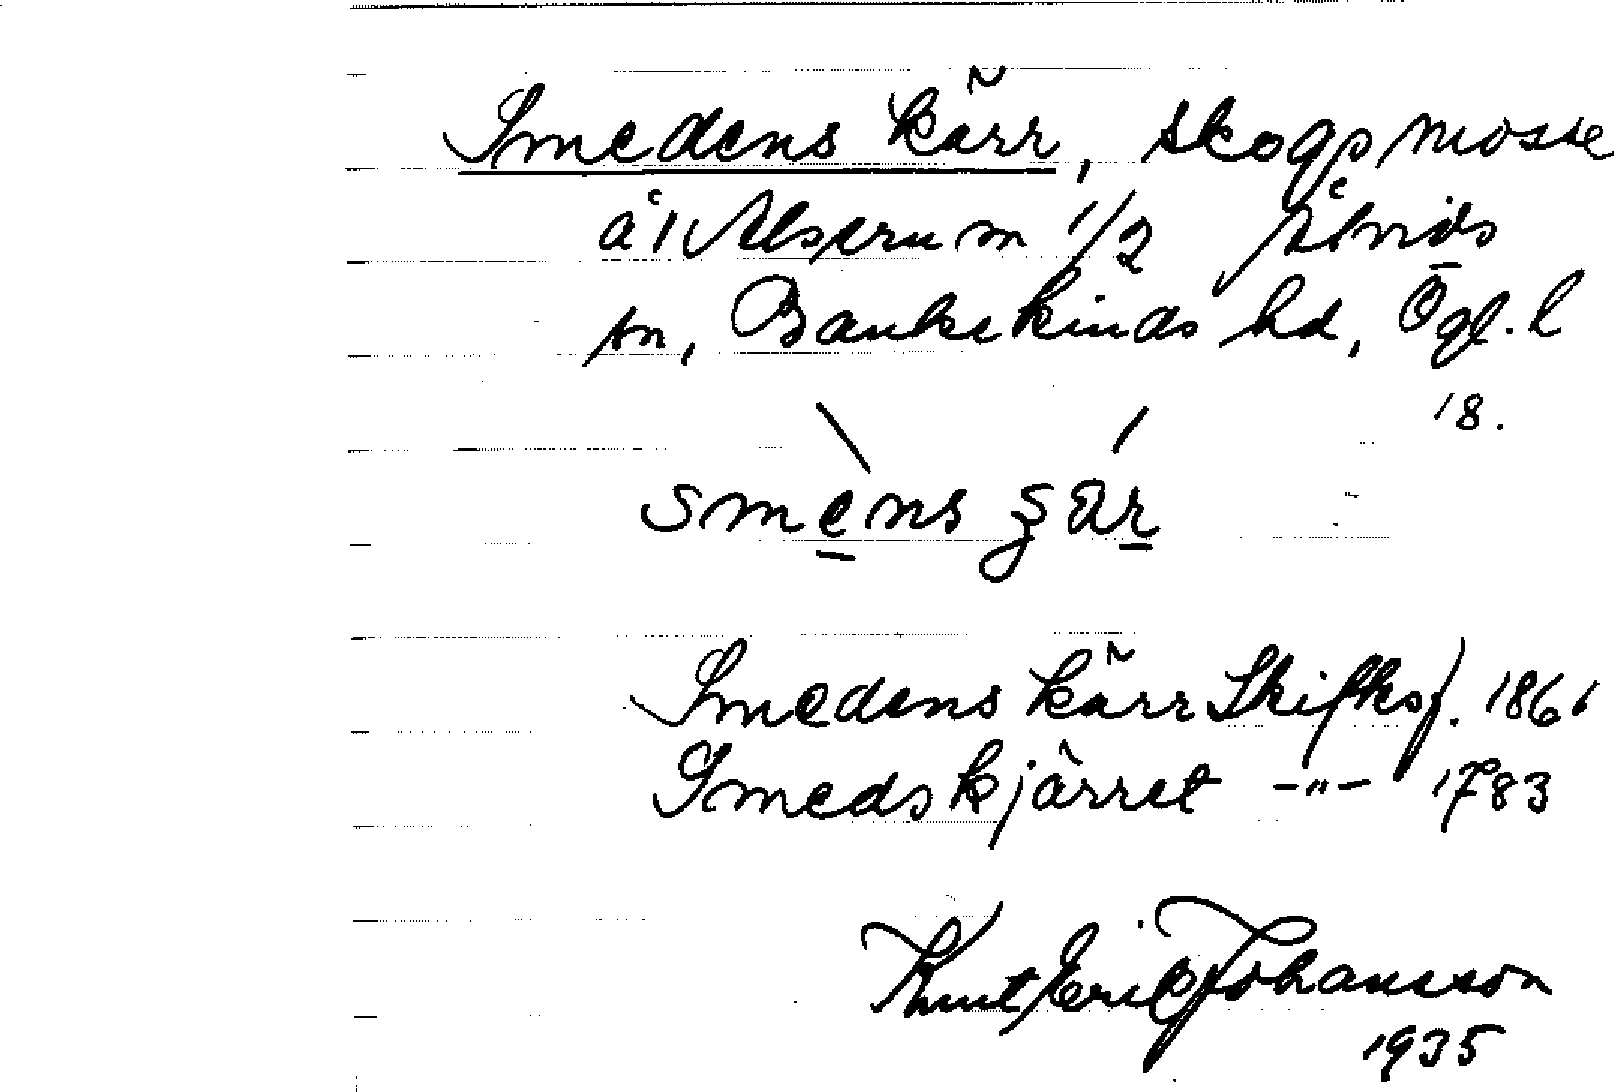 Smedens kärr, skogsmosse
å Alserum 1/2 Åtvids
sn, Bankekinds hd, Ögl. l
18.
smens
Smedens kärr Skifksf. 1861
Smedskjärret -"- 1783
Knut Erik Johansson
1935